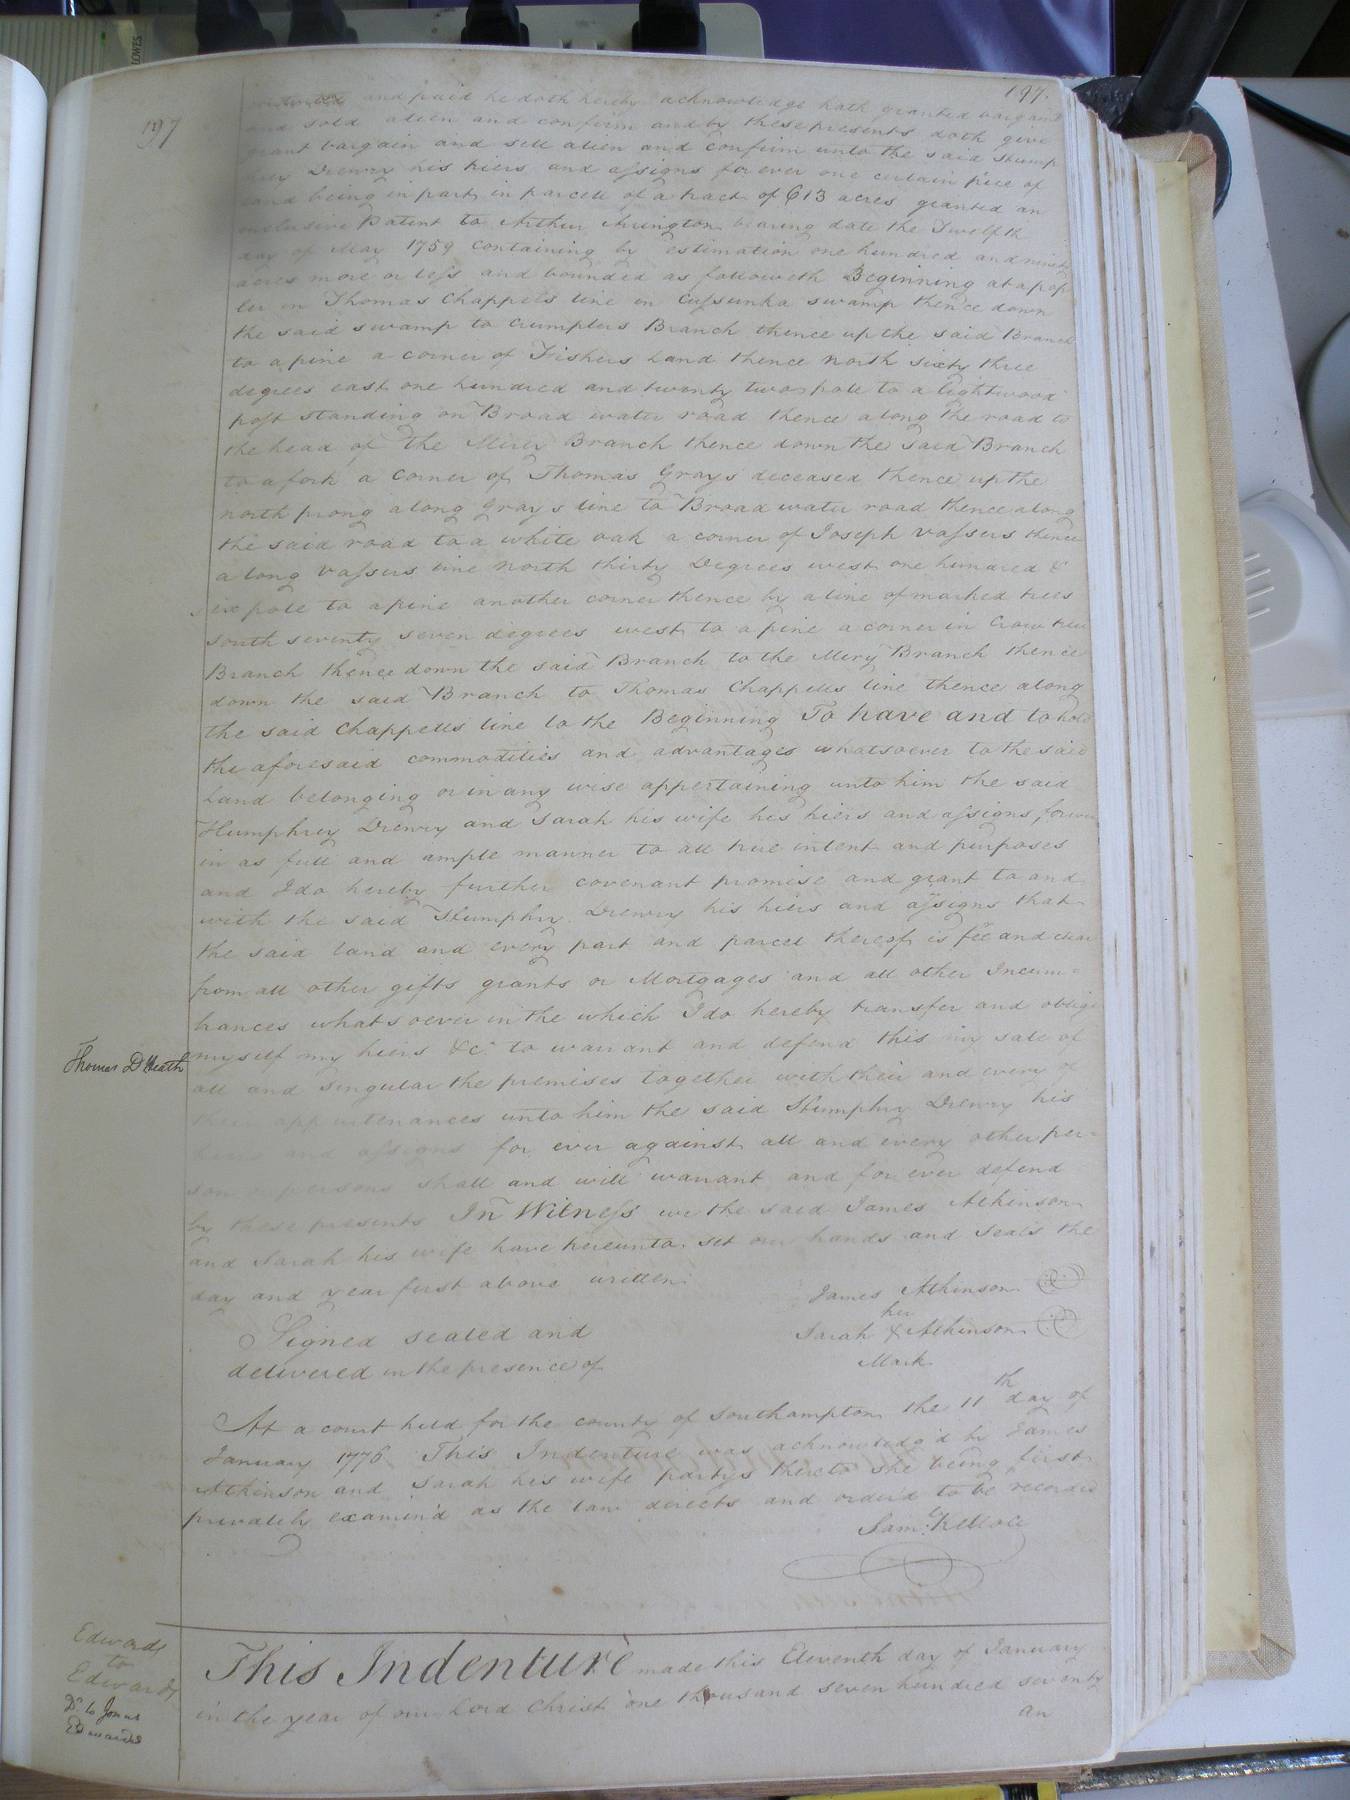 197.
197
and paid he doth hereby acknowledge hath granted bargand
and sold alien and confirm and by these presents doth give
grant bargain and sell alien and confirm unto the said Hump
hry Drewry his hiers and assigns for ever one certain piece of
land being in part in parcell of a tract of 613 acres granted an
inclusive Patent to Arthur Arington bearing date the Twelfth
day of May 1759 Containing by estimation one hundred and ninety
acres more or less and bounded as followeth Beginning at a pop
ler in Thomas Chappels line in Cussunka swamp thence down
the said swamp to Crumplers Branch thence up the said Branch
to a pine a corner of Fishers Land thence North sixty three
degrees east one hundred and twenty two pole to a lightwood
post standing on Broad water road thence along the road to
the head of the Miery Branch thence down the said Branch
to a fork a Corner of Thomas Grays deceased thence up the
north prong along Grays line to Broad water road thence along
the said road to a white oak a corner of Joseph Vassers thence
along Vassers line North thirty Degrees west one hundred &
six pole to a pine another corner thence by a line of marked trees
south seventy seven degrees west to a pine a corner in Crow tree
Branch thence down the said Branch to the Miry Branch thence
down the said Branch to Thomas Chappells line thence along
the said Chappells line to the Beginning To have and to hold
the aforesaid commodities and advantages whatsoever to the said
Land belonging or in any wise appertaining unto him the said
Humphrey Drewry and Sarah his wife his hiers and assigns forever
in as full and ample manner to all true intent and purposes
and I do hereby further covenant promise and grant to and
with the said Humphry Drewry his hiers and assigns that
the said land and every part and parcel thereof is fee and clear
from all other gifts grants or Mortgages and all other Incum=
brances whatsoever in the which I do hereby transfer and oblige
Thomas D Heath
myself my hiers &c. to warrant and defend this my sale of
all and singular the premises together with their and every of
their appurtenances unto him the said Humphry Drewry his
hiers and assigns for ever against all and every other per=
son or persons shall and will warrant and for ever defend
by these presents In Witness we the said James Atkinson
and Sarah his wife have hereunto set our hands and seals the
day and year first above written.
James Atkinson
her
Sarah X Atkinson
Mark
Signed sealed and
delivered in the presence of
At a court held for the county of Southampton the 11th day of
January 1776 This Indenture was acknowledg'd by James
Atkinson and Sarah his wife partys thereto she being first
privately examin'd as the law directs and order'd to be recorded
Saml. Kello CC
Edwards
to
Edwards
Dd. to Jonas
Edwards
This Indenture made this Eleventh day of January
in the year of our Lord Christ one thousand seven hundred seventy
an
LOWES